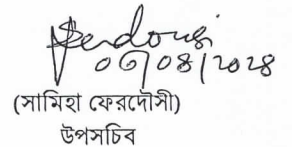 Ferdousi
০৩/০৪/২০২৪
(সামিহা ফেরদৌসী)
উপসচিব